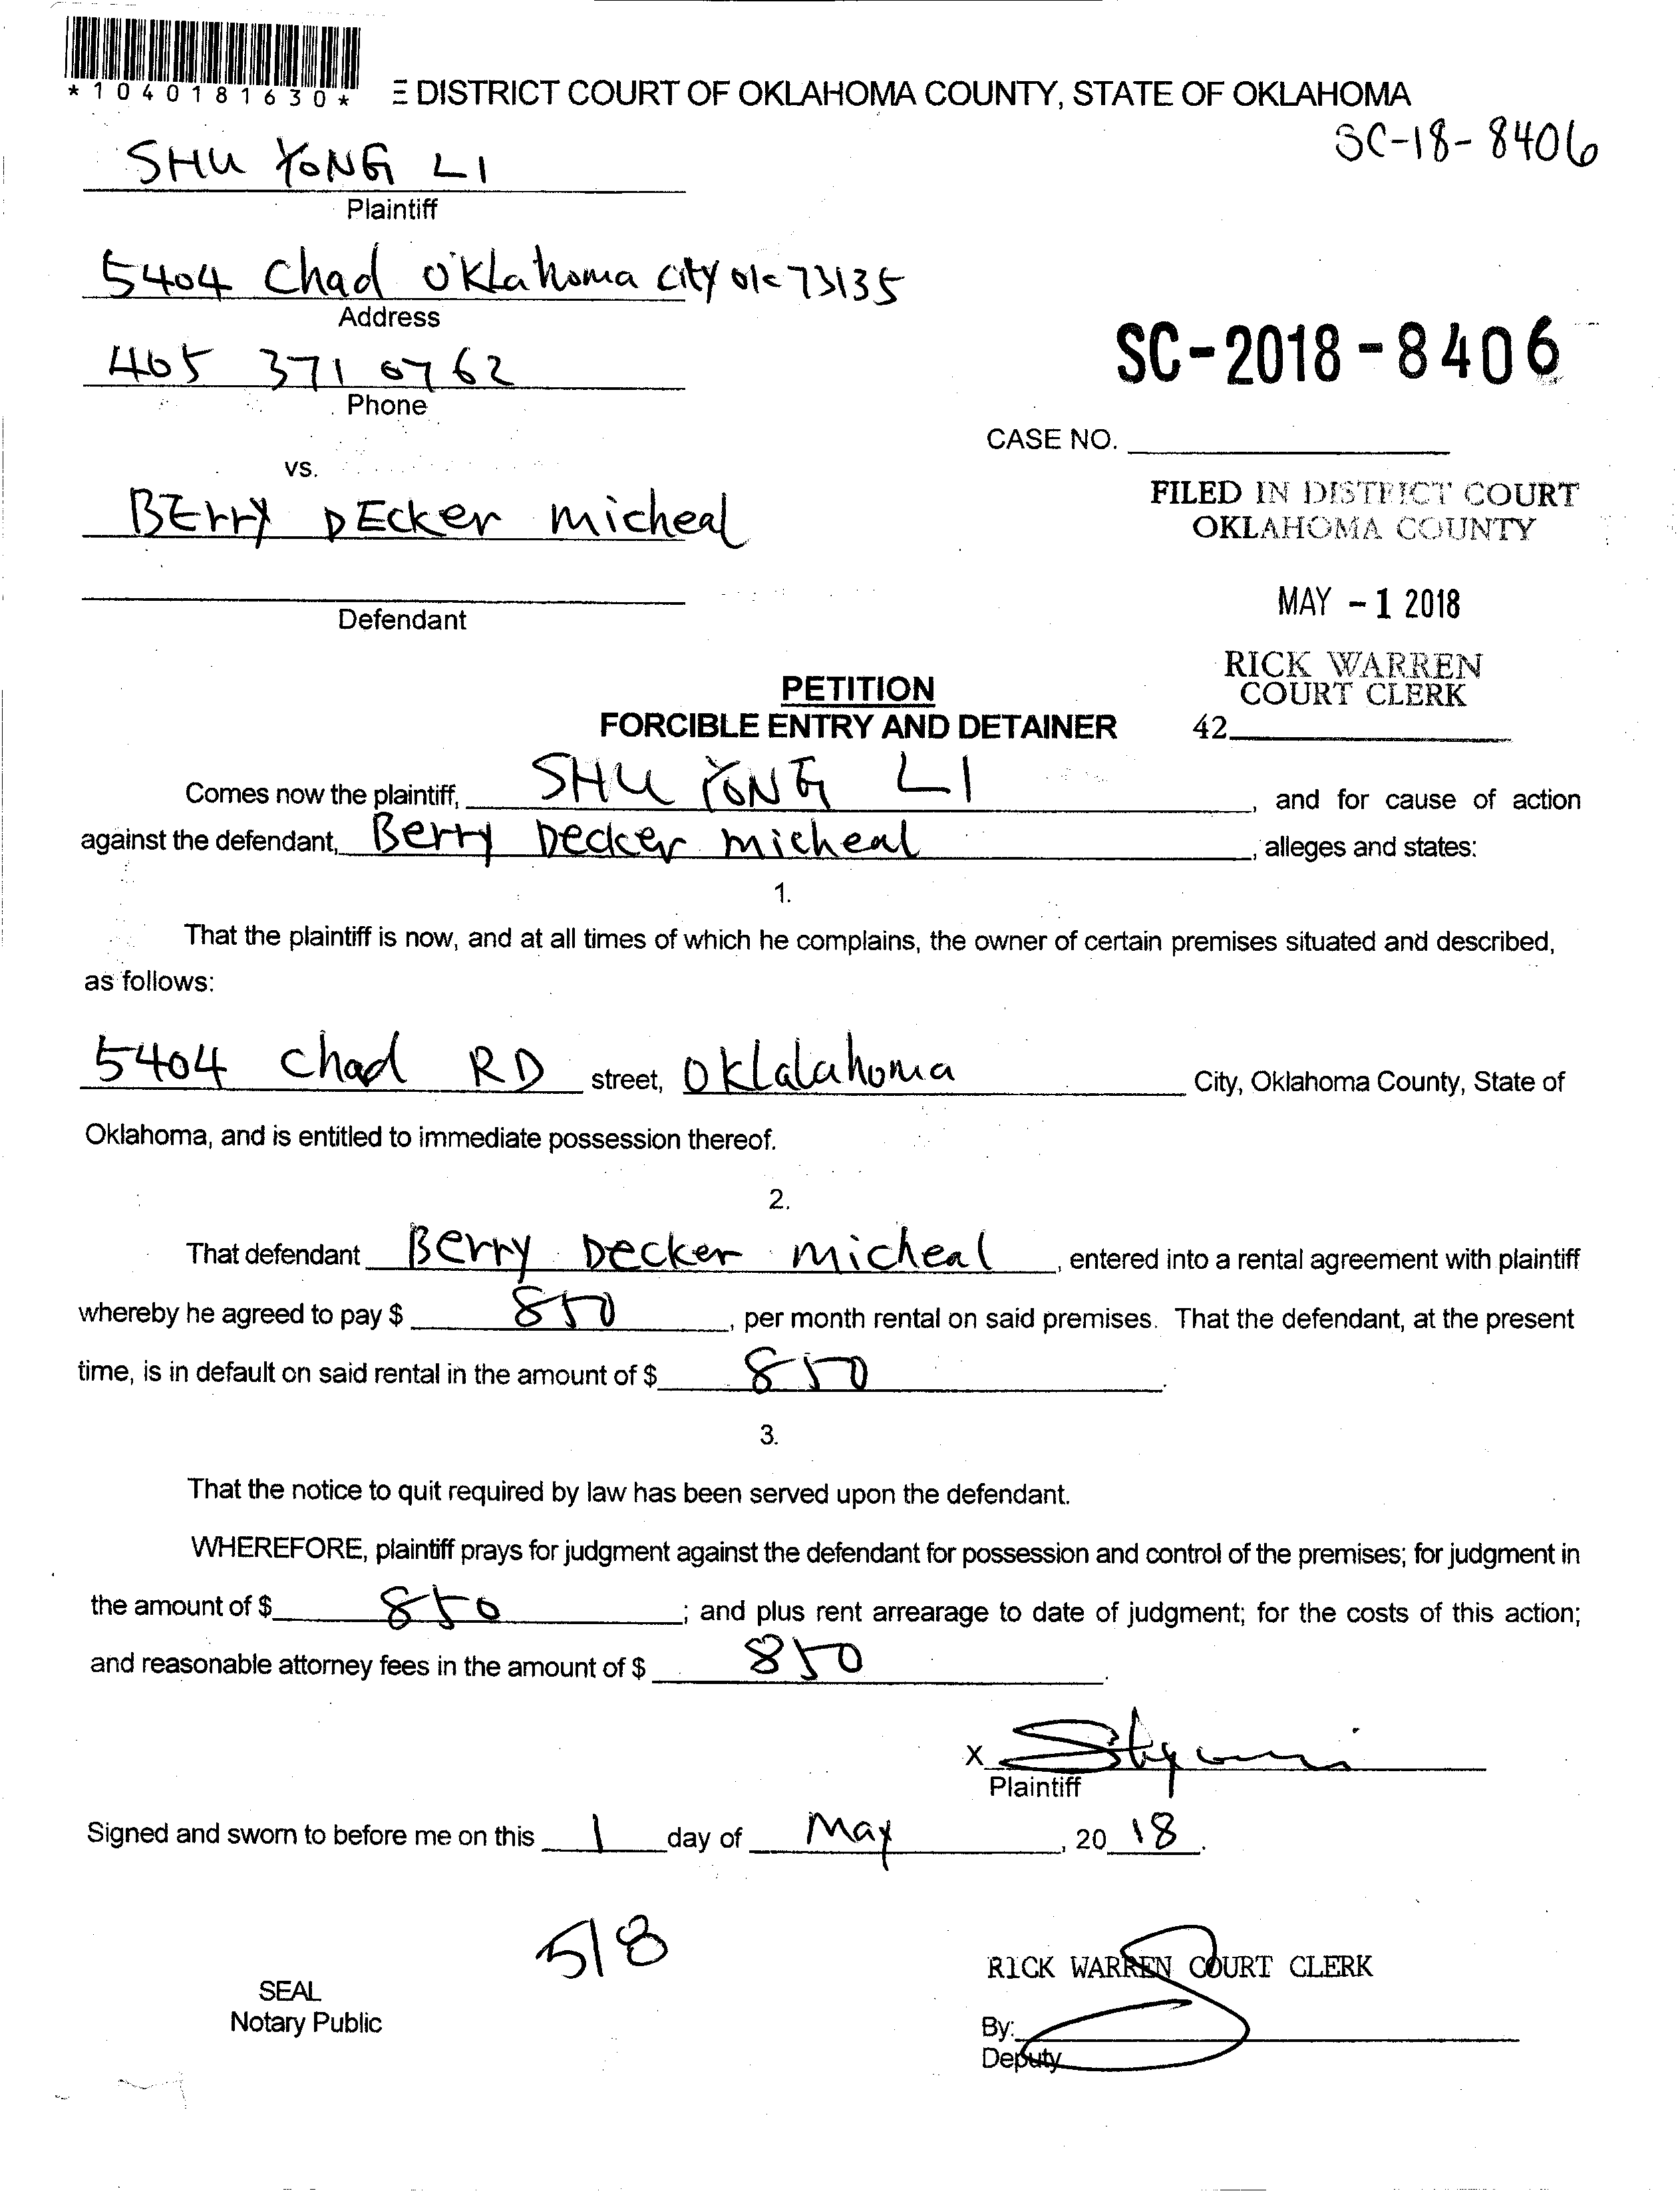 *1040181630*
E DISTRICT COURT OF OKLAHOMA COUNTY, STATE OF OKLAHOMA
SC-18-8406
SHU YONG LI
Plaintiff
5404 Chad Oklahoma city ok 73135
Address
405 371 0762
Phone
SC-2018-8406
CASE NO.
vs.
BErry DEcker micheal
FILED IN DISTRICT COURT
OKLAHOMA COUNTY
Defendant
MAY - 1 2018
RICK WARREN
COURT CLERK
42
PETITION
FORCIBLE ENTRY AND DETAINER
Comes now the plaintiff, SHU YONG LI, and for cause of action
against the defendant, Berry Decker micheal, alleges and states:
1.
That the plaintiff is now, and at all times of which he complains, the owner of certain premises situated and described,
as follows:
5404 Chad RD street, Oklalahoma City, Oklahoma County, State of
Oklahoma, and is entitled to immediate possession thereof.
2.
That defendant Berry Decker micheal, entered into a rental agreement with plaintiff
whereby he agreed to pay $ 850, per month rental on said premises. That the defendant, at the present
time, is in default on said rental in the amount of $ 850.
3.
That the notice to quit required by law has been served upon the defendant.
WHEREFORE, plaintiff prays for judgment against the defendant for possession and control of the premises; for judgment in
the amount of $ 850; and plus rent arrearage to date of judgment; for the costs of this action;
and reasonable attorney fees in the amount of $ 850.
X
Plaintiff
Signed and sworn to before me on this 1 day of May, 20 18.
5/8
SEAL
Notary Public
RICK WARREN COURT CLERK
By:
Deputy